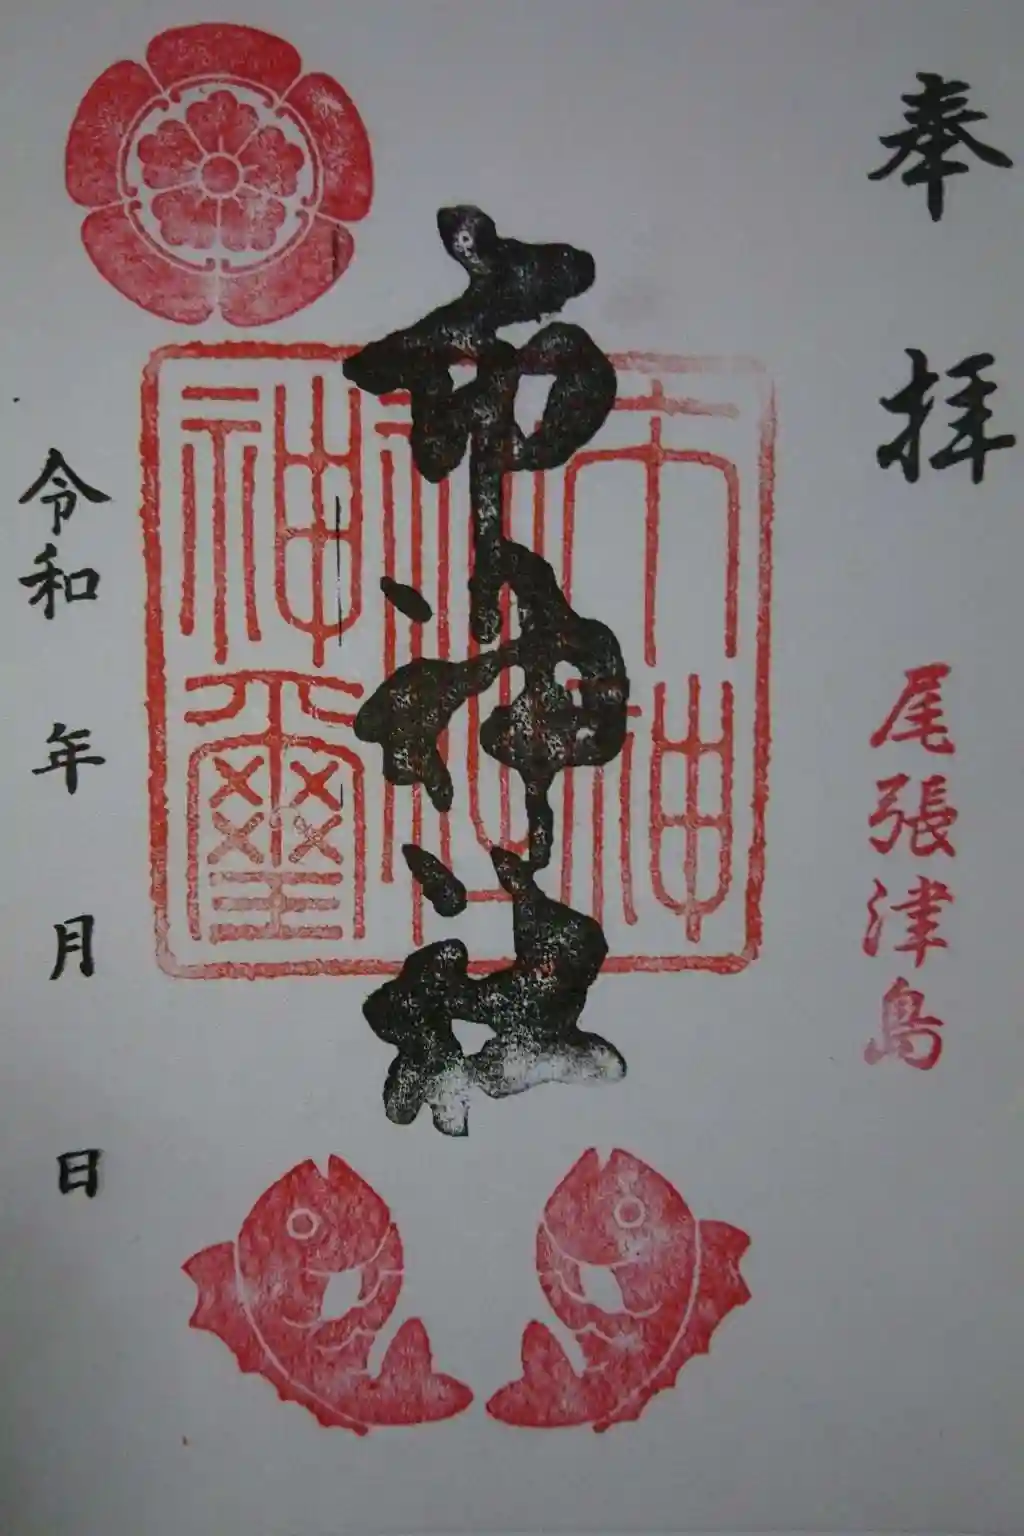 奉拝
尾張津島
市神社
市神
神社
神璽
令和 年 月 日